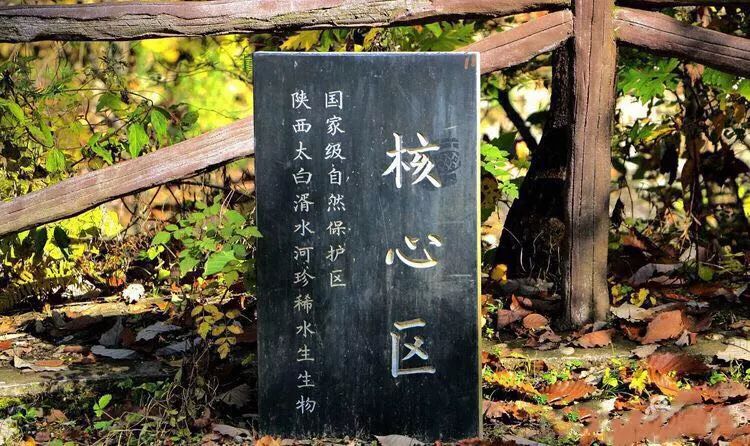 陕西太白湑水河珍稀水生生物
国家级自然保护区
核心区